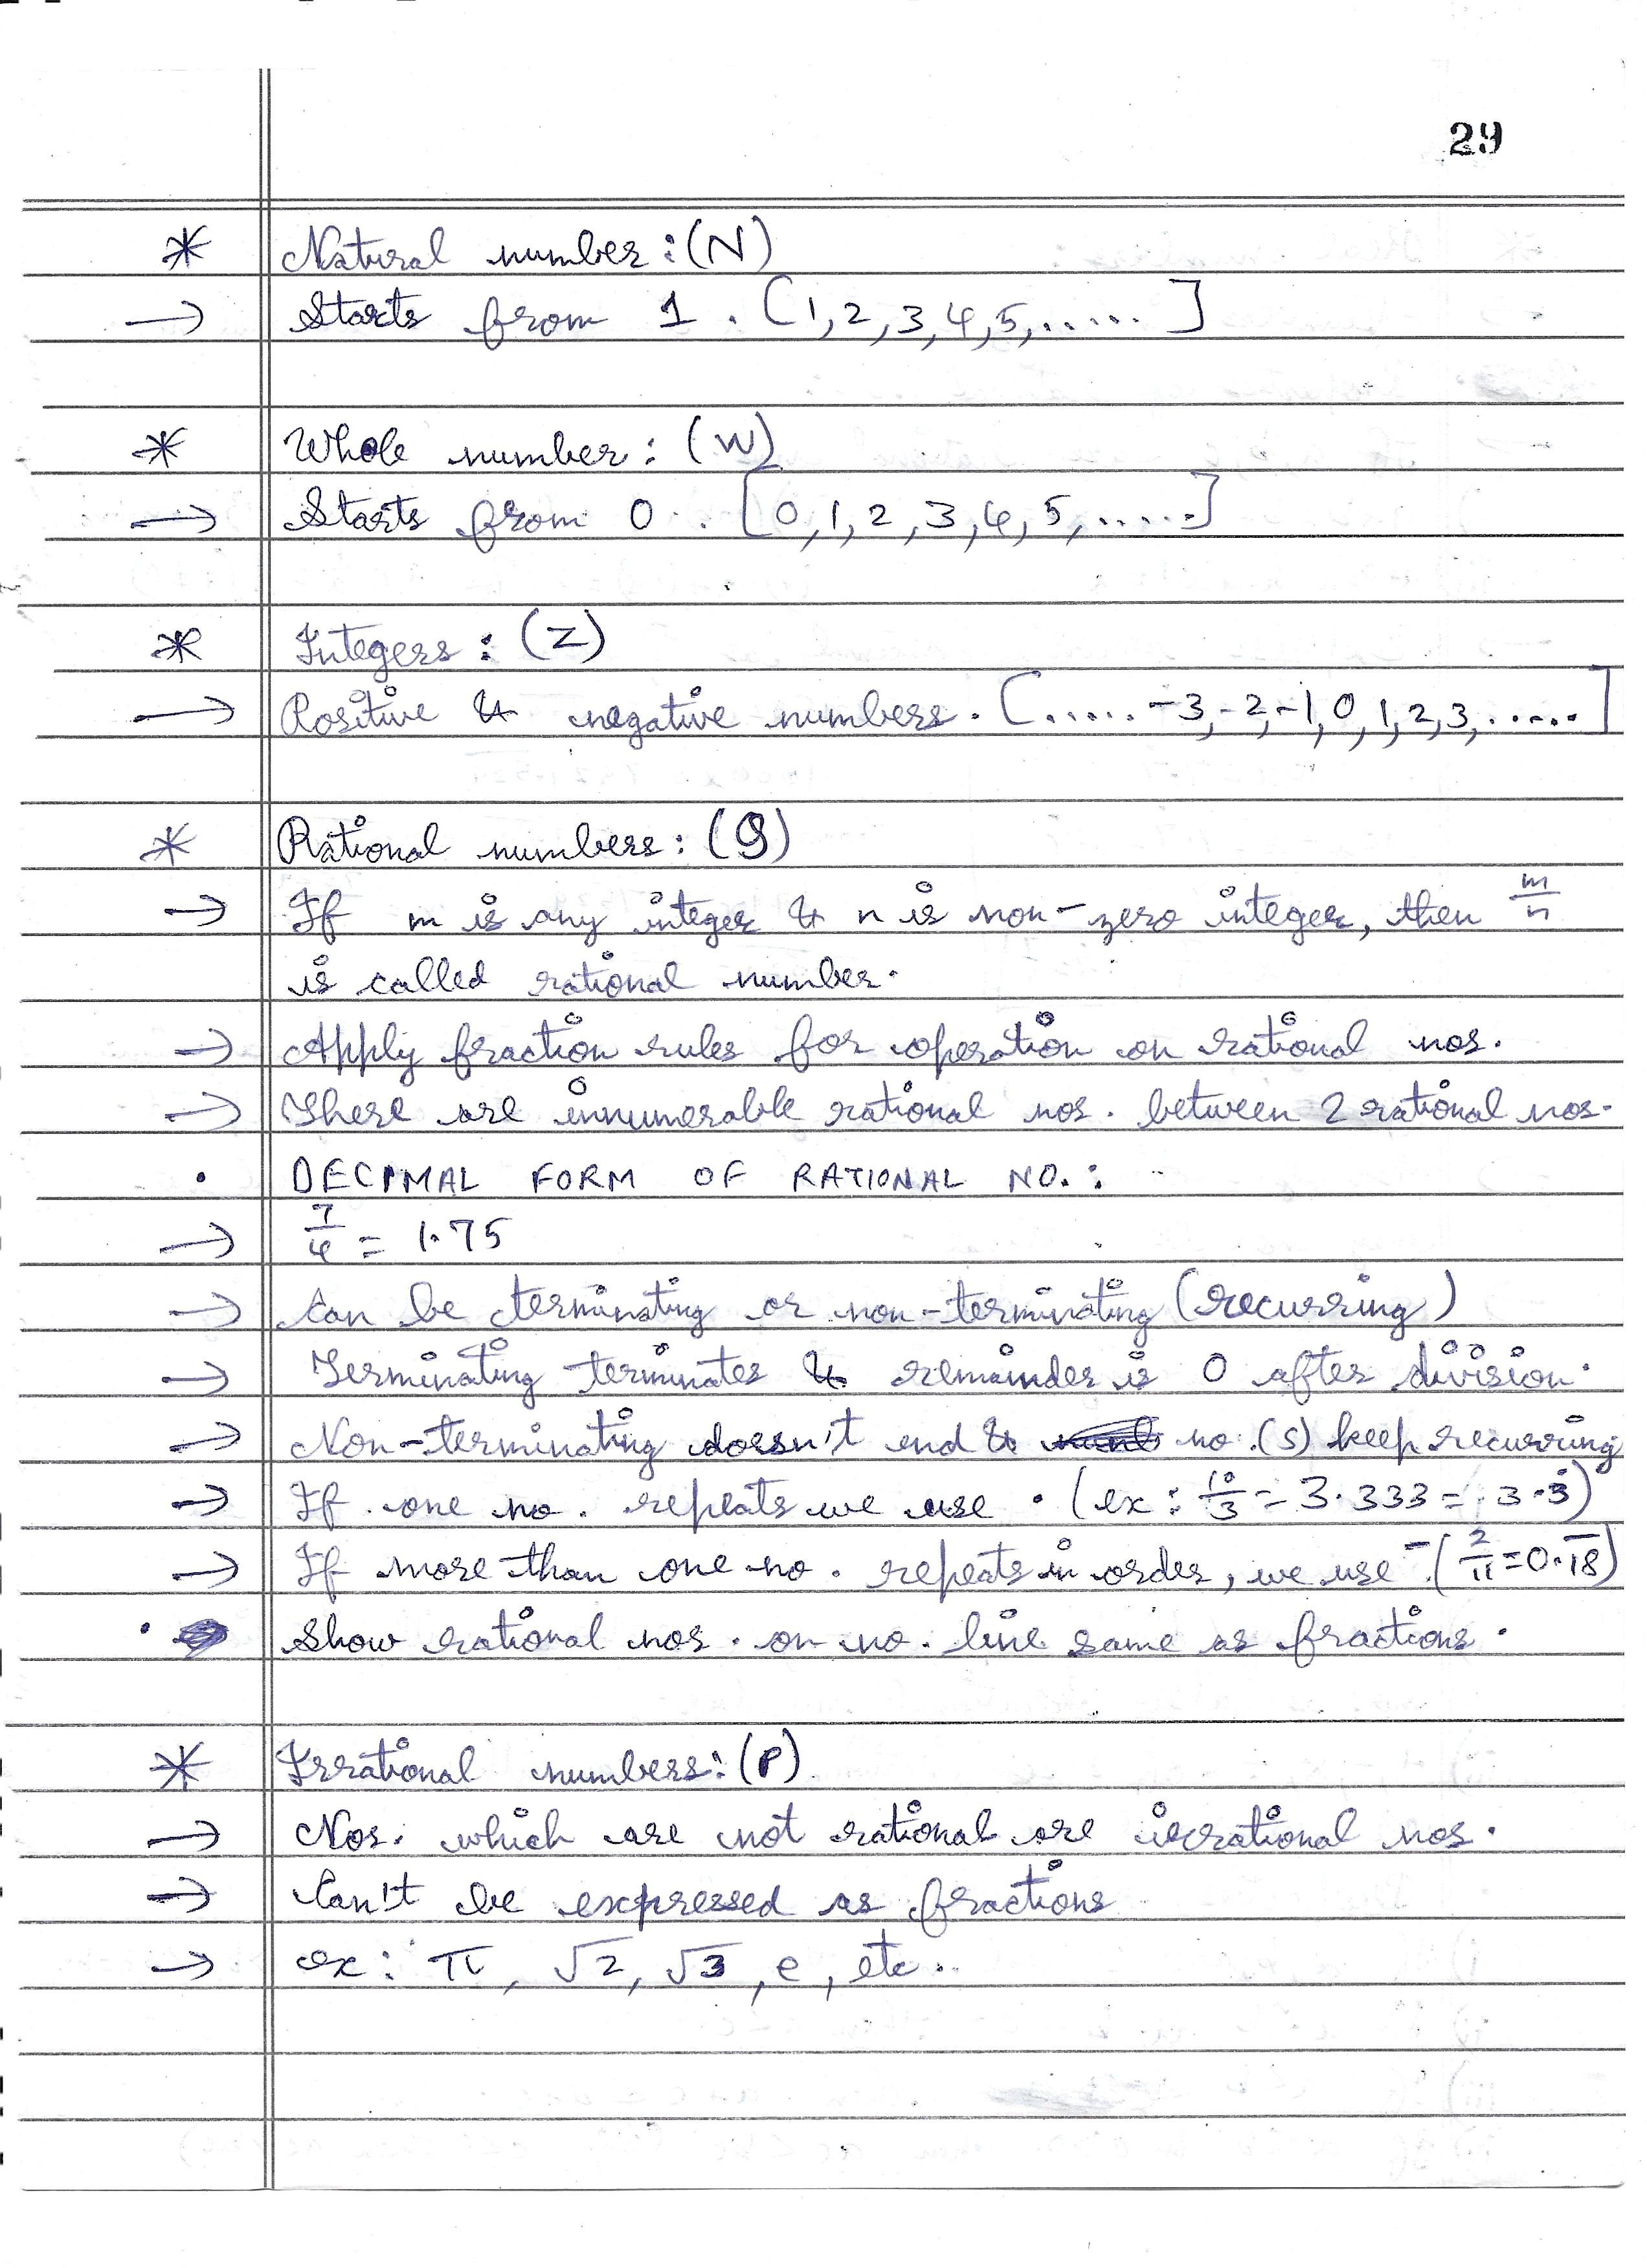 29
* Natural number : (N)
→ Starts from 1 . [1, 2, 3, 4, 5, ..... ]
* Whole number : (W)
→ Starts from 0 . [0, 1, 2, 3, 4, 5, .....]
* Integers : (Z)
→ Positive & negative numbers. [...... -3, -2, -1, 0, 1, 2, 3, ......]
* Rational numbers : (Q)
→ If m is any integer & n is non-zero integer, then m/n
is called rational number.
→ Apply fraction rules for operation on rational nos.
→ There are innumerable rational nos. between 2 rational nos.
• DECIMAL FORM OF RATIONAL NO. :
→ 7/4 = 1.75
→ Can be terminating or non-terminating (recurring)
→ Terminating terminates & remainder is 0 after division.
→ Non-terminating doesn't end & no.(s) keep recurring
→ If one no. repeats we use • (ex : 10/3 = 3.333 = 3.3̇)
→ If more than one no. repeats in order, we use – (2/11 = 0.1̅8̅)
• Show rational nos. on no. line same as fractions.
* Irrational numbers : (P)
→ Nos. which are not rational are irrational nos.
→ Can't be expressed as fractions
→ ex : π, √2, √3, e, etc.